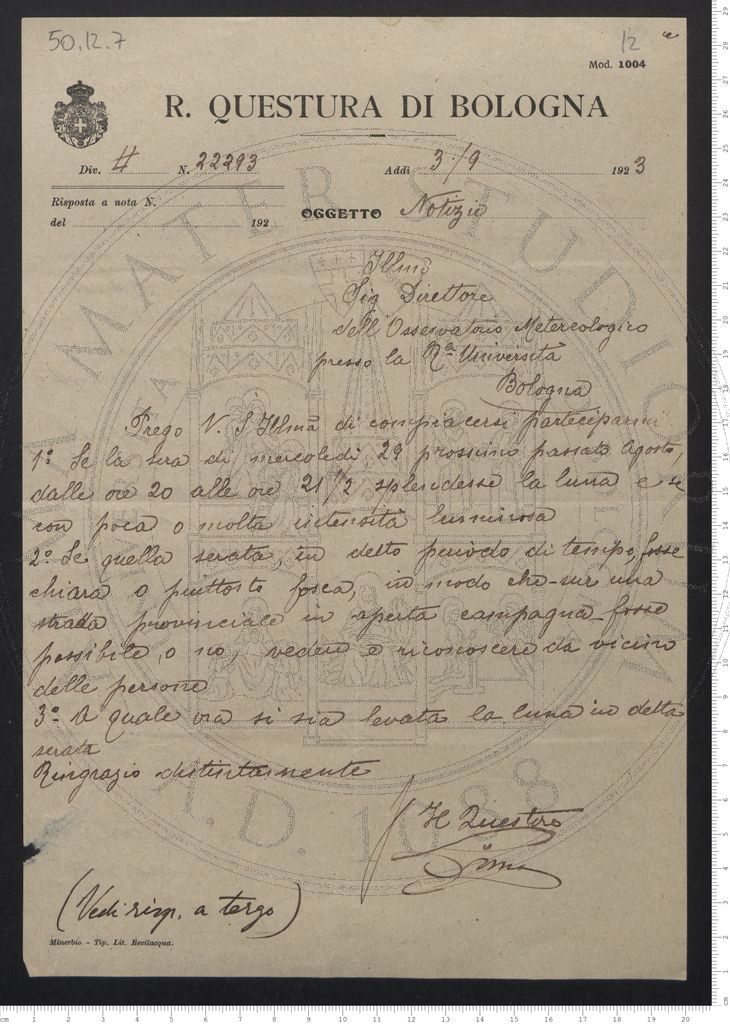 50.12.7
12
Mod. 1004
R. QUESTURA DI BOLOGNA
Div. N. 22293 Addì 3/9 1923
Risposta a nota N.
del 192 OGGETTO Notizie
Illmo
Sig Direttore
dell'Osservatorio Metereologico
presso la Ra Università
Bologna
Prego V. S. Illma di compiacersi parteciparmi
1º Se la sera di mercoledì 29 prossimo passato Agosto,
dalle ore 20 alle ore 21 1/2 splendesse la luna e se
con poca o molta intensità luminosa
2º Se quella serata, in detto periodo di tempo, fosse
chiara o piuttosto fosca, in modo che sur una
strada provinciale in aperta campagna fosse
possibile, o no, vedere e riconoscere da vicino
delle persone
3º A quale ora si sia levata la luna in detta
serata
Ringrazio distintamente
Il Questore
(Vedi risp. a tergo)
Minerbio - Tip. Lit. Bevilacqua.
ALMA MATER STUDIORUM
A.D. 1088